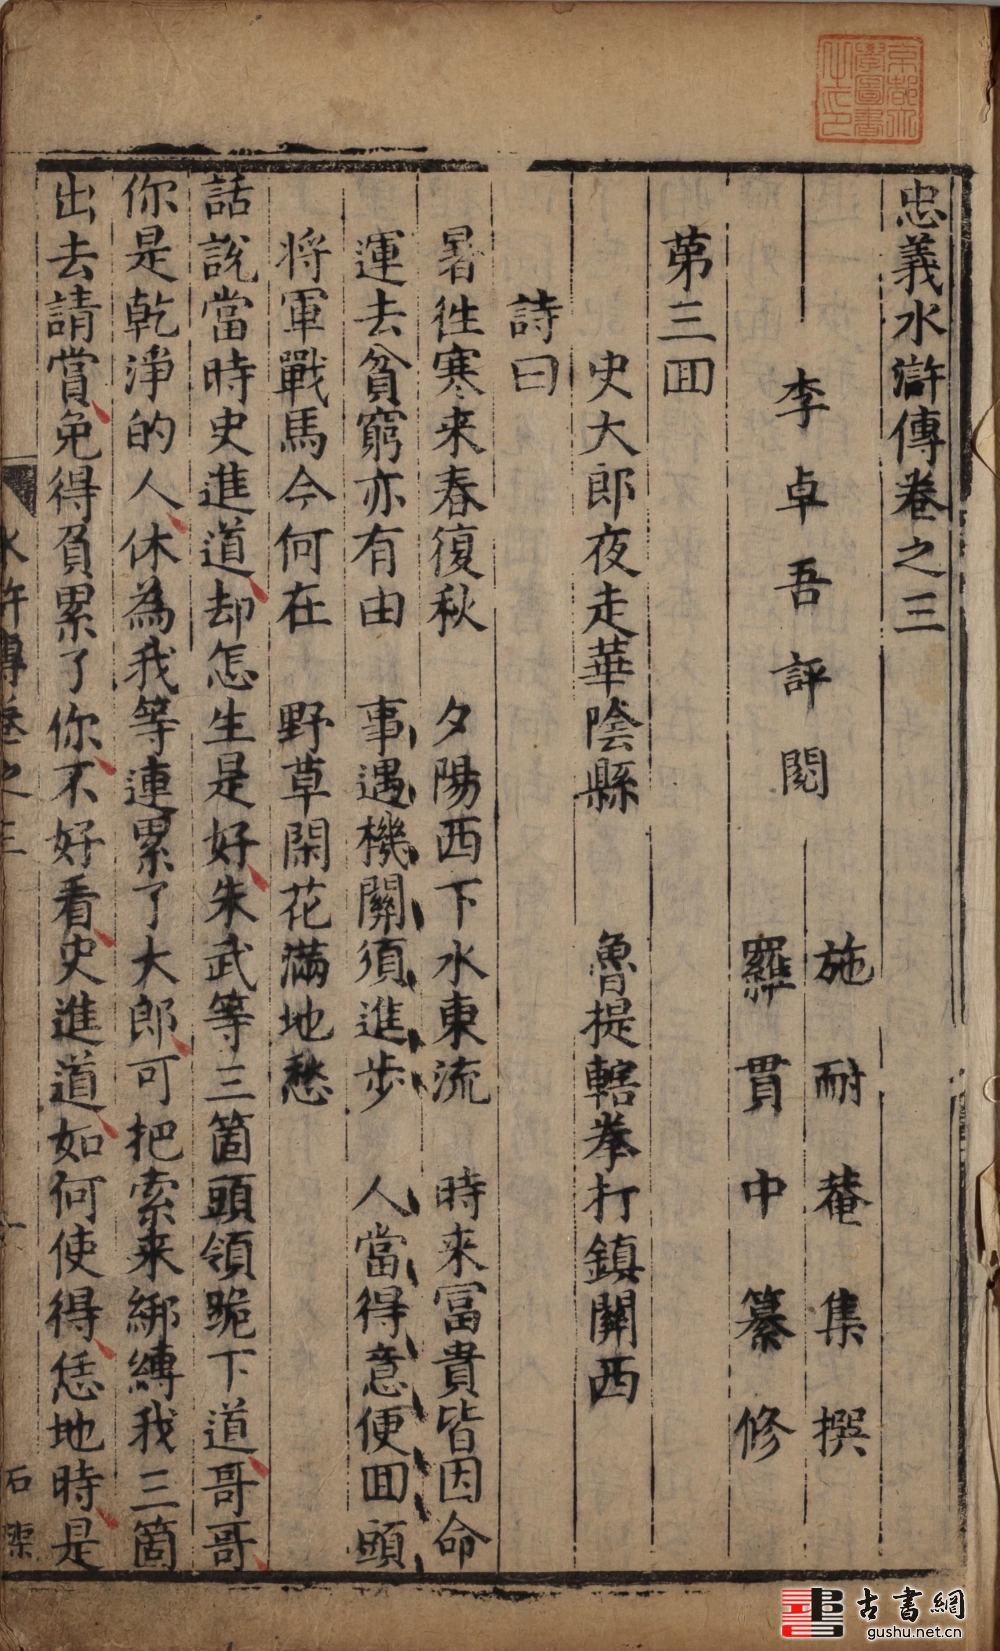 忠義水滸傳卷之三
李卓吾評閱
施耐菴集撰
羅貫中纂修
苐三囬
史大郎夜走華陰縣　魯提轄拳打鎮關西
詩曰
暑往寒来春復秋　夕陽西下水東流　時来富貴皆因命
運去貧窮亦有由　事遇機關須進步　人當得意便囬頭
将軍戰馬今何在　野草閑花滿地愁
話說當時史進道却怎生是好朱武等三箇頭領跪下道哥哥
你是乾淨的人休為我等連累了大郎可把索来綁縛我三箇
出去請賞免得負累了你不好看史進道如何使得恁地時是
水滸傳卷之三
一
京都大學圖書之印
古書網
gushu.net.cn